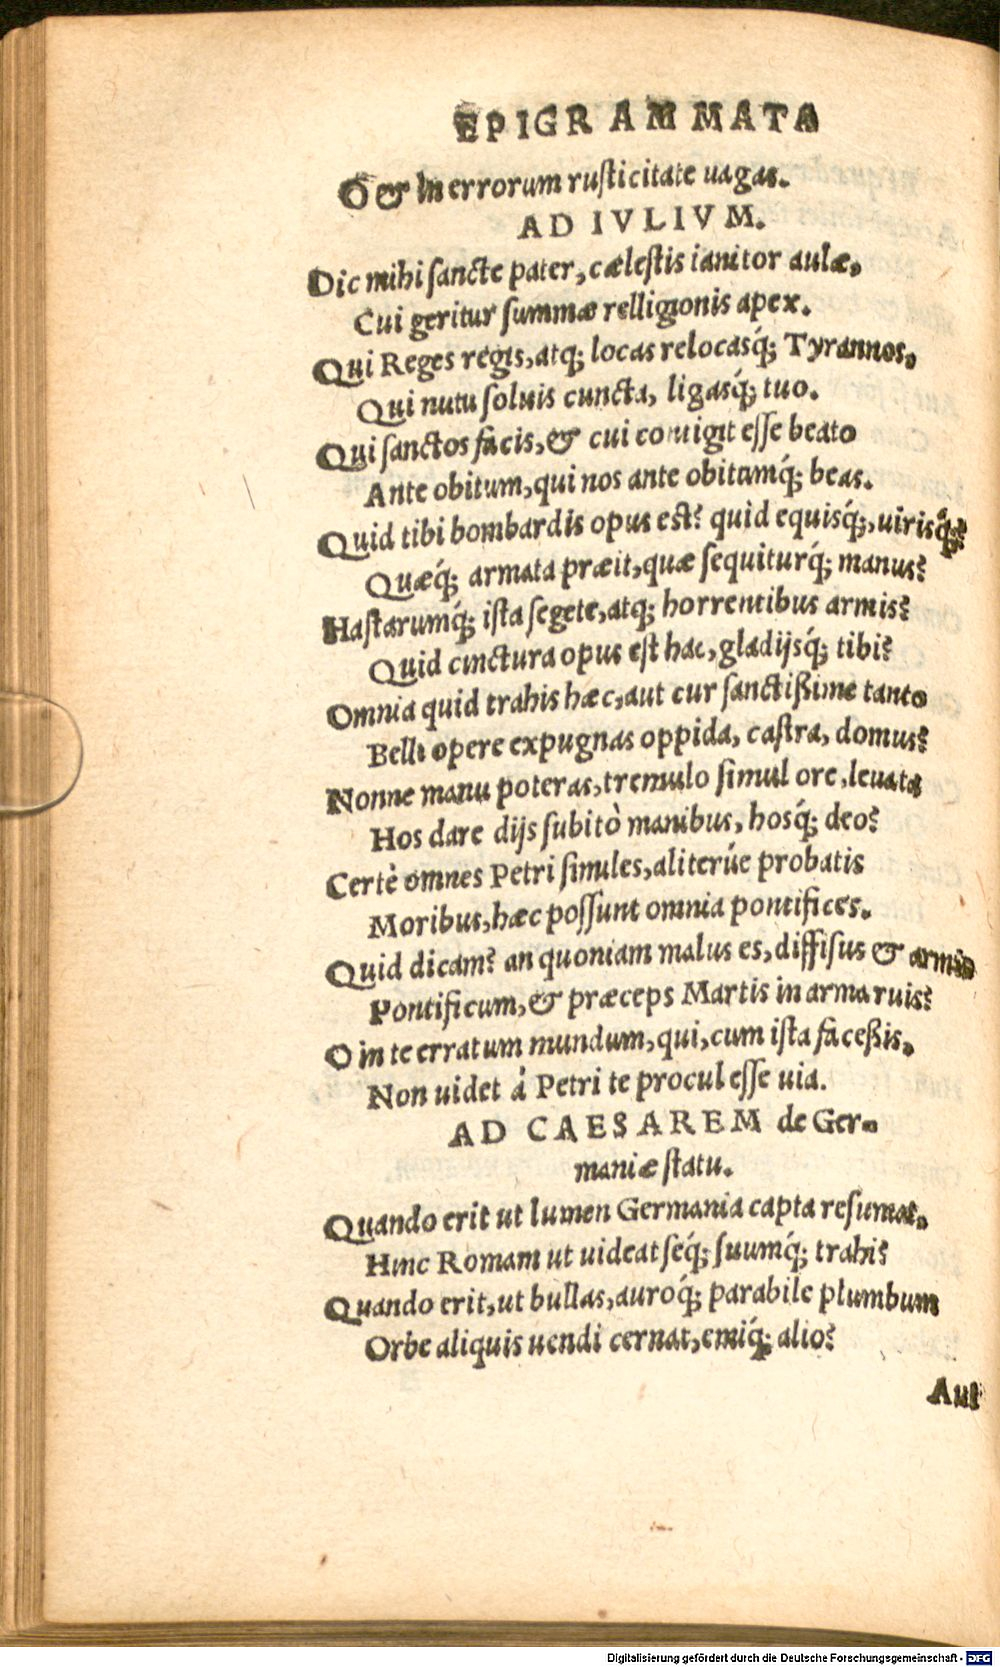 EPIGRAMMATA
O & in errorum rusticitate uagas.
AD IVLIVM.
Dic mihi sancte pater, cælestis ianitor aulæ,
Cui geritur summæ relligionis apex.
Qui Reges regis, atq; locas relocasq́; Tyrannos,
Qui nutu soluis cuncta, ligasq́; tuo.
Qui sanctos facis, & cui contigit esse beato
Ante obitum, qui nos ante obitumq́; beas.
Quid tibi bombardis opus est? quid equisq́;, uirisq́;?
Quæq́; armata præit, quæ sequiturq́; manus?
Hastarumq́; ista segete, atq; horrentibus armis?
Quid cinctura opus est hac, gladijsq́; tibi?
Omnia quid trahis hæc, aut cur sanctißime tanto
Belli opere expugnas oppida, castra, domus?
Nonne manu poteras, tremulo simul ore, leuata
Hos dare dijs subitò manibus, hosq́; deo?
Certè omnes Petri similes, aliterúe probatis
Moribus, hæc possunt omnia pontifices.
Quid dicam? an quoniam malus es, diffisus & armis
Pontificum, & præceps Martis in arma ruis?
O in te erratum mundum, qui, cum ista faceßis,
Non uidet à Petri te procul esse uia.
AD CAESAREM de Ger-
maniæ statu.
Quando erit ut lumen Germania capta resumat,
Hinc Romam ut uideat seq́; suumq́; trahi?
Quando erit, ut bullas, auroq́; parabile plumbum
Orbe aliquis uendi cernat, emiq́; alio?
Aut
Digitalisierung gefördert durch die Deutsche Forschungsgemeinschaft - DFG